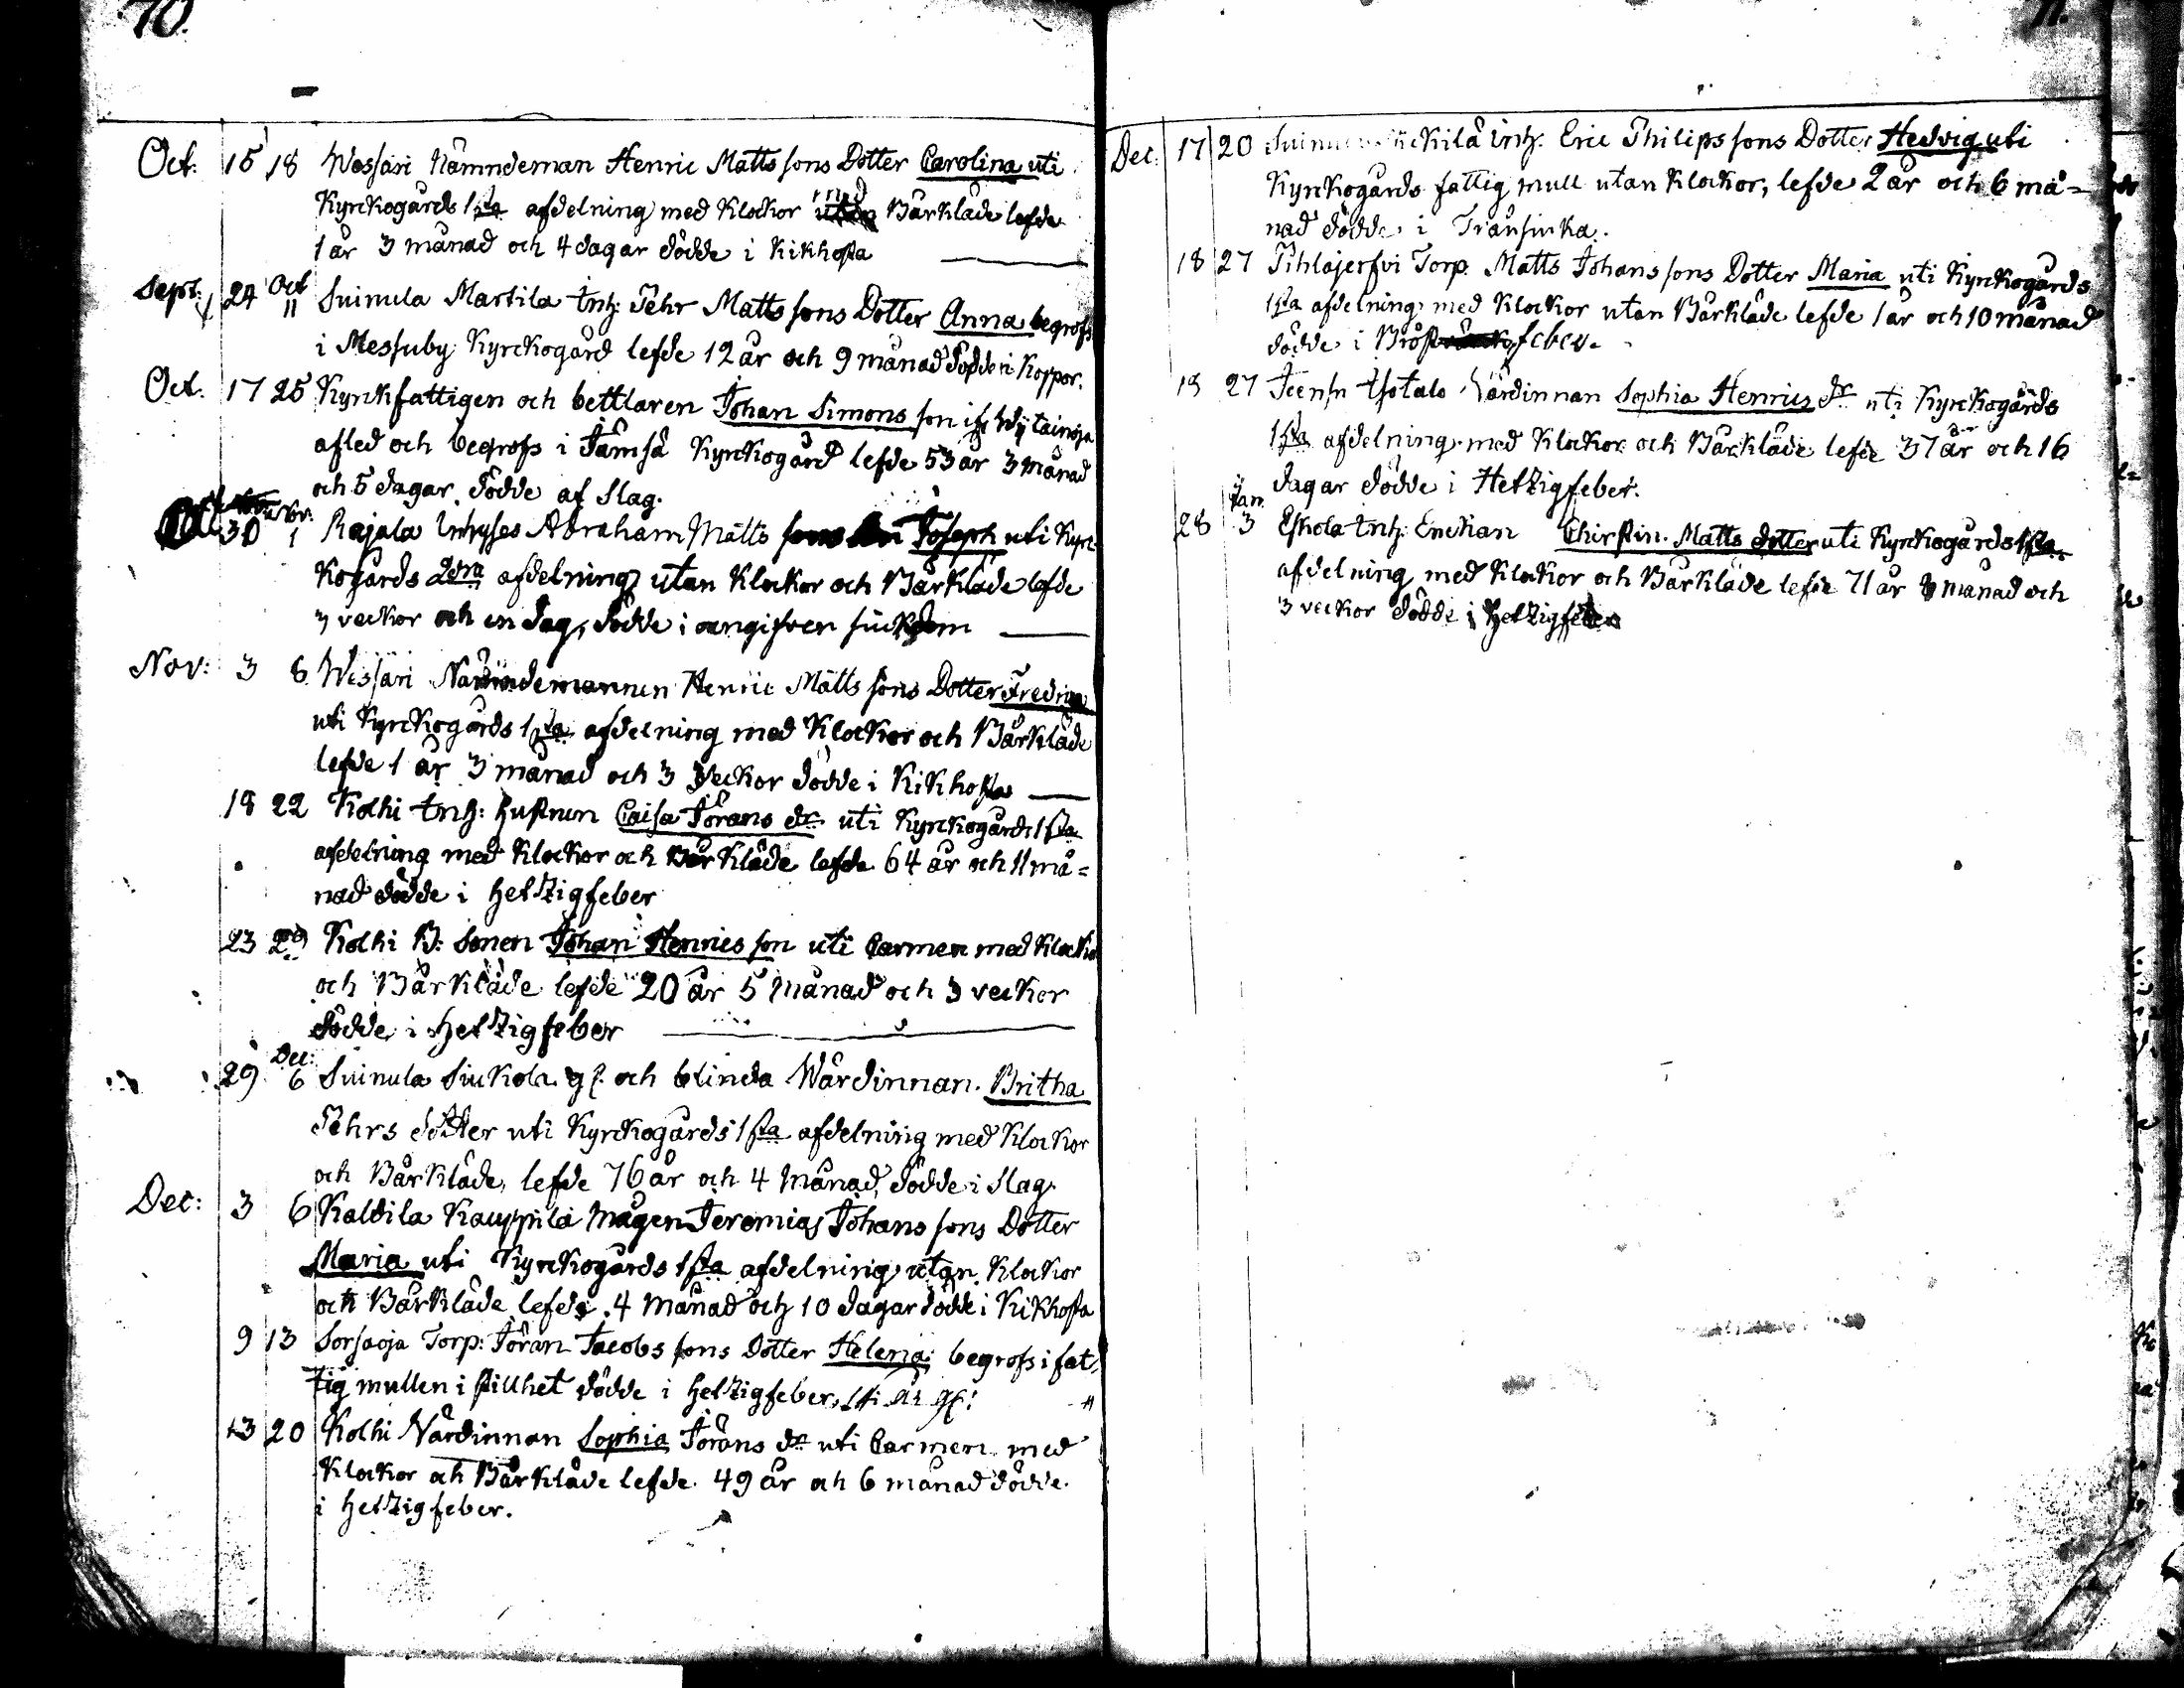 70.
Oct: 15 18 Wessari Nämndeman Henric Matts sons Dotter Carolina uti
Kyrckogårds 1sta afdelning med Klockor med Bårkläde lefde
1 år 3 månad och 4 dagar dödde i Kikhosta
Sept: 24 Oct 11 Suinula Martila Inh: Pehr Matts sons Dotter Anna begrofs
i Messuby Kyrckogård lefde 12 år och 9 månad dödde i Koppor.
Oct. 17 25 Kyrckfattigen och bettlaren Johan Simons son
afled och begrofs i Jämsä Kyrckogård lefde 53 år 3 månad
och 5 dagar dödde af Slag.
30 Nov: 1 Rajala Inhyses Abraham Matts sons son Joseph uti Kyrc-
kogårds 2dra afdelning utan Klockor och Bårkläde lefde
3 veckor och en dag, dödde i oangifven siukdom
Nov: 3 8 Wessari Nämndemannen Henric Matts sons Dotter Fredrica
uti Kyrckogårds 1sta afdelning med Klockor och Bårkläde
lefde 1 år 3 månad och 3 veckor dödde i Kikhosta
18 22 Kolhi Inh: hustrun Caisa Jörans dr uti Kyrckogårds 1sta
afdelning med Klockor och Bårkläde lefde 64 år och 11 må=
nad dödde i Hetzigfeber
23 29 Kolhi B: Sonen Johan Henrics son uti Carmen med Klockor
och Bårkläde lefde 20 år 5 månad och 3 veckor
dödde i Hetzigfeber
29 Dec: 6 Suinula Siukola gl. och blinda Wärdinnan Britha
Pehrs dotter uti Kyrckogårds 1sta afdelning med Klockor
och Bårkläde, lefde 76 år och 4 Månad, dödde i Slag.
Dec: 3 6 Kaldila Kauppila Mågen Jeremias Johans sons Dotter
Maria uti Kyrckogårds 1sta afdelning utan Klockor
och Bårkläde lefde 4 Månad och 10 dagar dödde i Kikhosta
9 13 Sorsaoja Torp: Jöran Jacobs sons Dotter Helena begrofs i fat-
tig mullen i stillhet dödde i Hetzigfeber,
13 20 Kolhi Värdinnan Sophia Jörans dr uti Carmen med
Klockor och Bårkläde lefde 49 år och 6 månad dödde
i Hetzigfeber.
11.
Dec: 17 20 Inh: Eric Philips sons Dotter Hedvig uti
Kyrckogårds fattig mull utan Klockor, lefde 2 år och 6 må=
nad dödde i Trånsiuka.
18 27 Pihlajerfvi Torp. Matts Johans sons Dotter Maria uti Kyrckogårds
1sta afdelning med Klockor utan Bårkläde lefde 1 år och 10 månad
dödde i Bröstfeber.
18 27 Värdinnan Sophia Henrics dr uti Kyrckogårds
1sta afdelning med Klockor och Bårkläde lefde 37 år och 16
dagar dödde i Hetzigfeber.
28 Jan. 3 Eskola Inh: Enckan Chirstin Matts dotter uti Kyrckogårds 1sta
afdelning med Klockor och Bårkläde lefde 71 år månad och
3 veckor dödde i Hetzigfeber